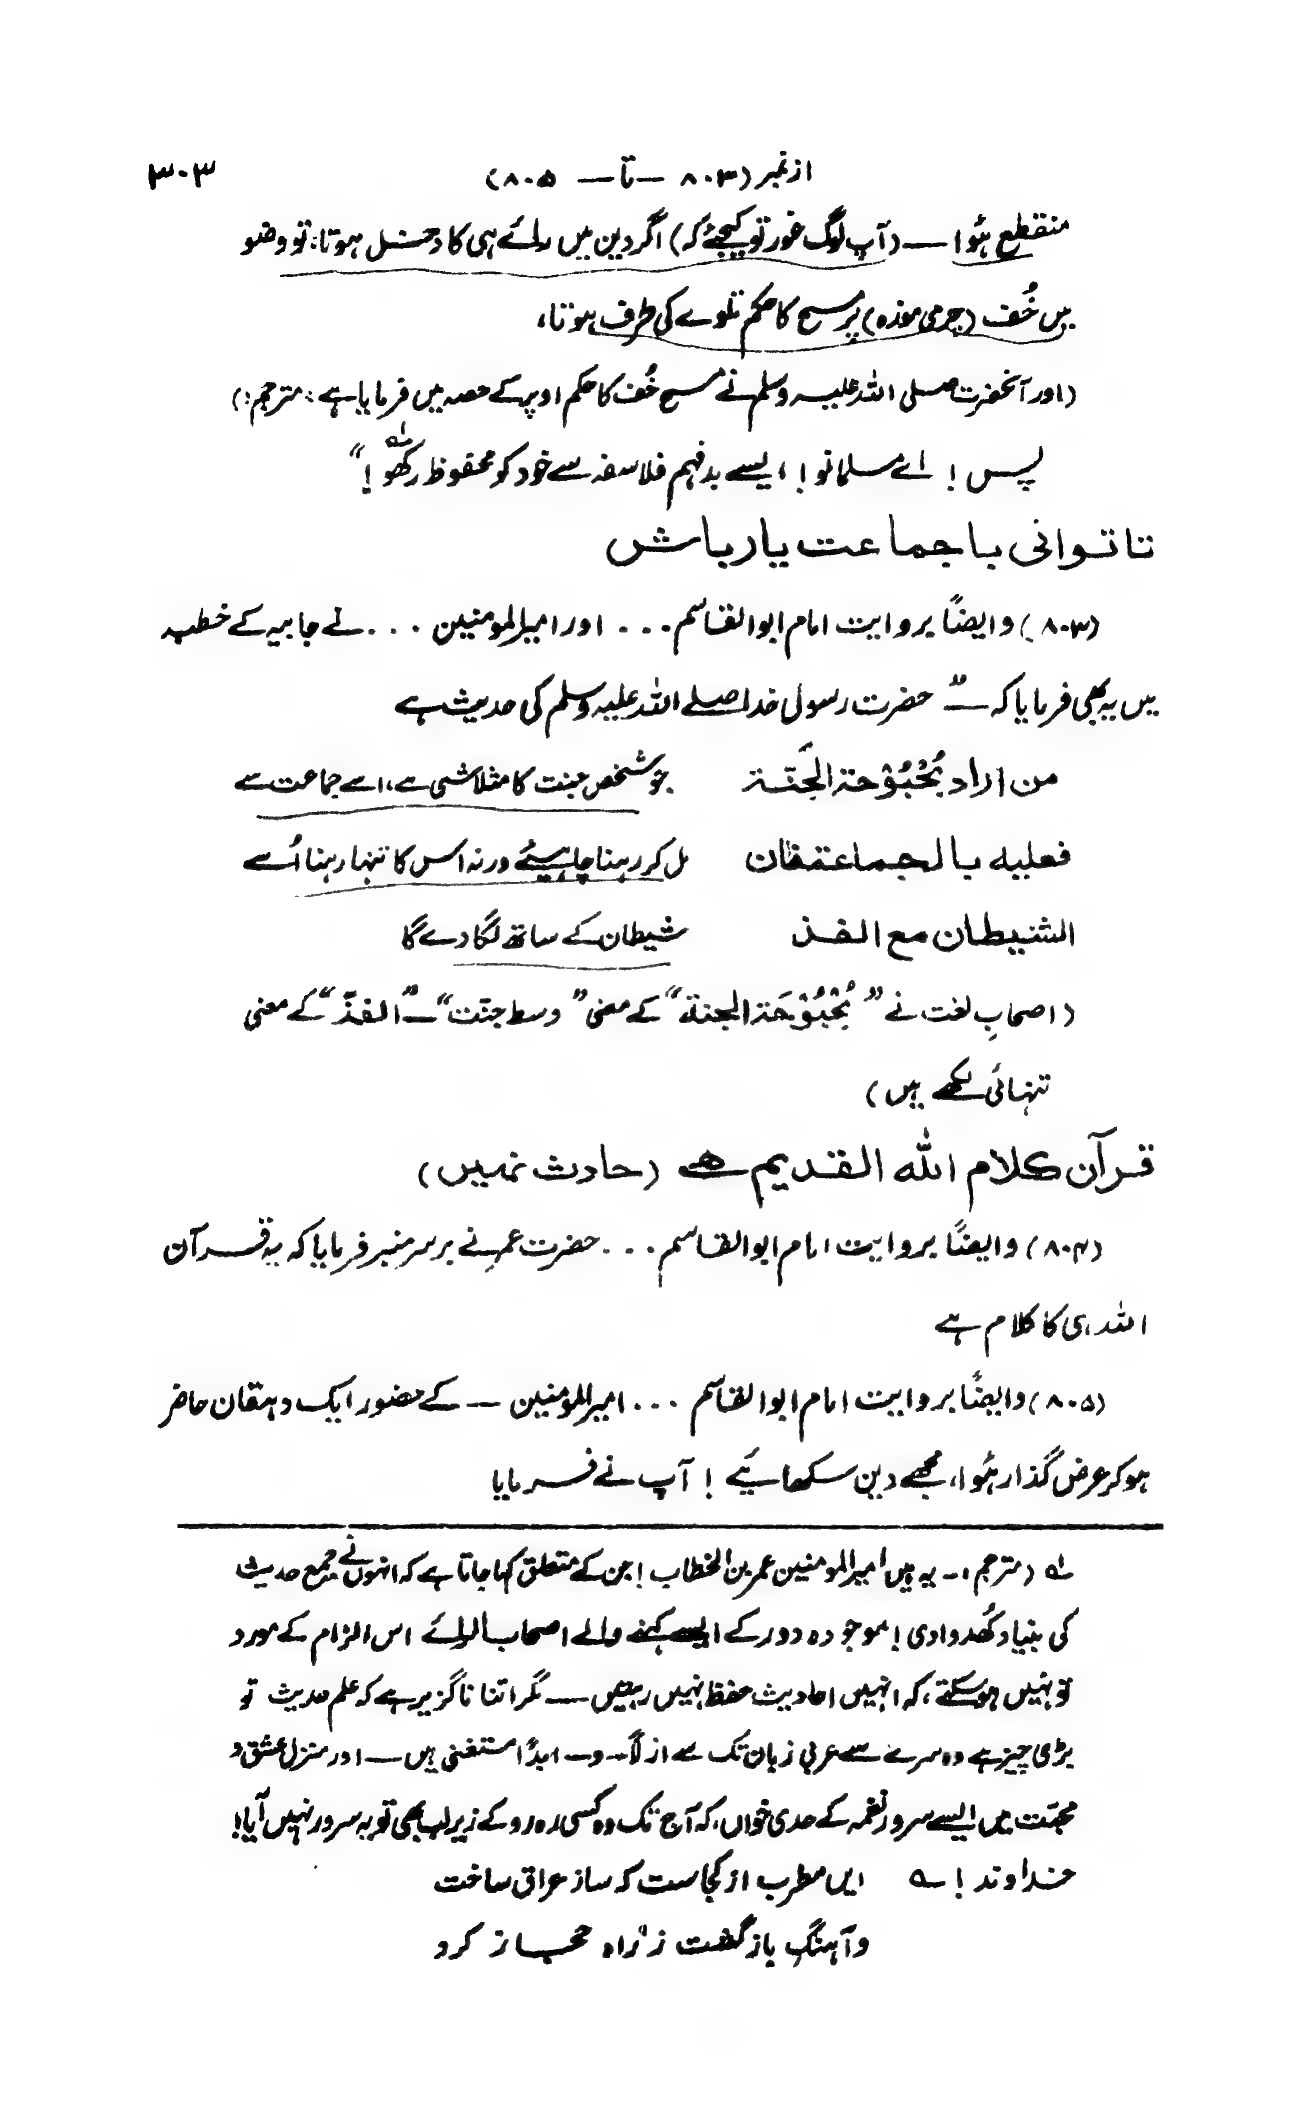 از نمبر (۸۰۳ — تا — ۸۰۵) ۳۰۳
منقطع ہؤا — (آپ لوگ غور تو کیجئے کہ) اگر دین میں رائے ہی کا دخل ہوتا: تو وضو
میں خُف (جرمی موزہ) پر مسح کا حکم تلوے کی طرف ہوتا،
(اور آنحضرت صلی اللہ علیہ وسلم نے مسح خُف کا حکم اوپر کے حصہ میں فرمایا ہے: مترجم:)
پس! اے مسلمانو! ایسے بدفہم فلاسفہ سے خود کو محفوظ رکھو لہ!"
تا توانی با جماعت یار باش
(۸۰۳) وایضًا بروایت امام ابوالقاسم... اور امیرالمومنین ... نے جابیہ کے خطبہ
میں یہ بھی فرمایا کہ — "حضرت رسول خدا صلے اللہ علیہ وسلم کی حدیث ہے
من اراد بُحْبُوْحۃ الجَنّۃ جو شخص جنت کا متلاشی ہے، اسے جماعت سے
فعلیہ بالجماعۃ فان مل کر رہنا چاہیئے ورنہ اس کا تنہا رہنا اُسے
الشیطان مع الفذ شیطان کے ساتھ لگا دے گا
(اصحابِ لغت نے "بُحْبُوْحَۃ الجنۃ" کے معنی "وسط جنّت" — "الفذّ" کے معنی
تنہائی لکھے ہیں)
قرآن کلام اللہ القدیم ہے (حادث نہیں)
(۸۰۴) وایضًا بروایت امام ابوالقاسم... حضرت عمر نے برسر منبر فرمایا کہ یہ قرآن
اللہ ہی کا کلام ہے
(۸۰۵) وایضًا بروایت امام ابوالقاسم ... امیرالمومنین — کے حضور ایک دہقان حاضر
ہو کر عرض گذار ہؤا، مجھے دین سکھائیے! آپ نے فرمایا
لہ (مترجم:- یہ ہیں امیرالمومنین عمر بن الخطاب! جن کے متعلق کہا جاتا ہے کہ انہوں نے جمع حدیث
کی بنیاد کھدوادی! موجودہ دور کے ایسے کہنے والے اصحاب الرائے اس الزام کے مورد
تو نہیں ہوسکتے، کہ انہیں احادیث حفظ نہیں رہتیں — مگر اتنا ناگزیر ہے کہ علم حدیث تو
بڑی چیز ہے وہ سرے سے عربی زبان تک سے ازلًا - و - ابدًا مستغنی ہیں — اور منزل عشق و
محبّت میں ایسے سرور نغمہ کے حدی خواں، کہ آج تک وہ کسی رہ رو کے زیر لب بھی تو بہ سرور نہیں آیا!
خداوند! ؎ ایں مطرب از کجاست کہ ساز عراق ساخت
و آہنگِ بازگشت ز راہ حجاز کرد